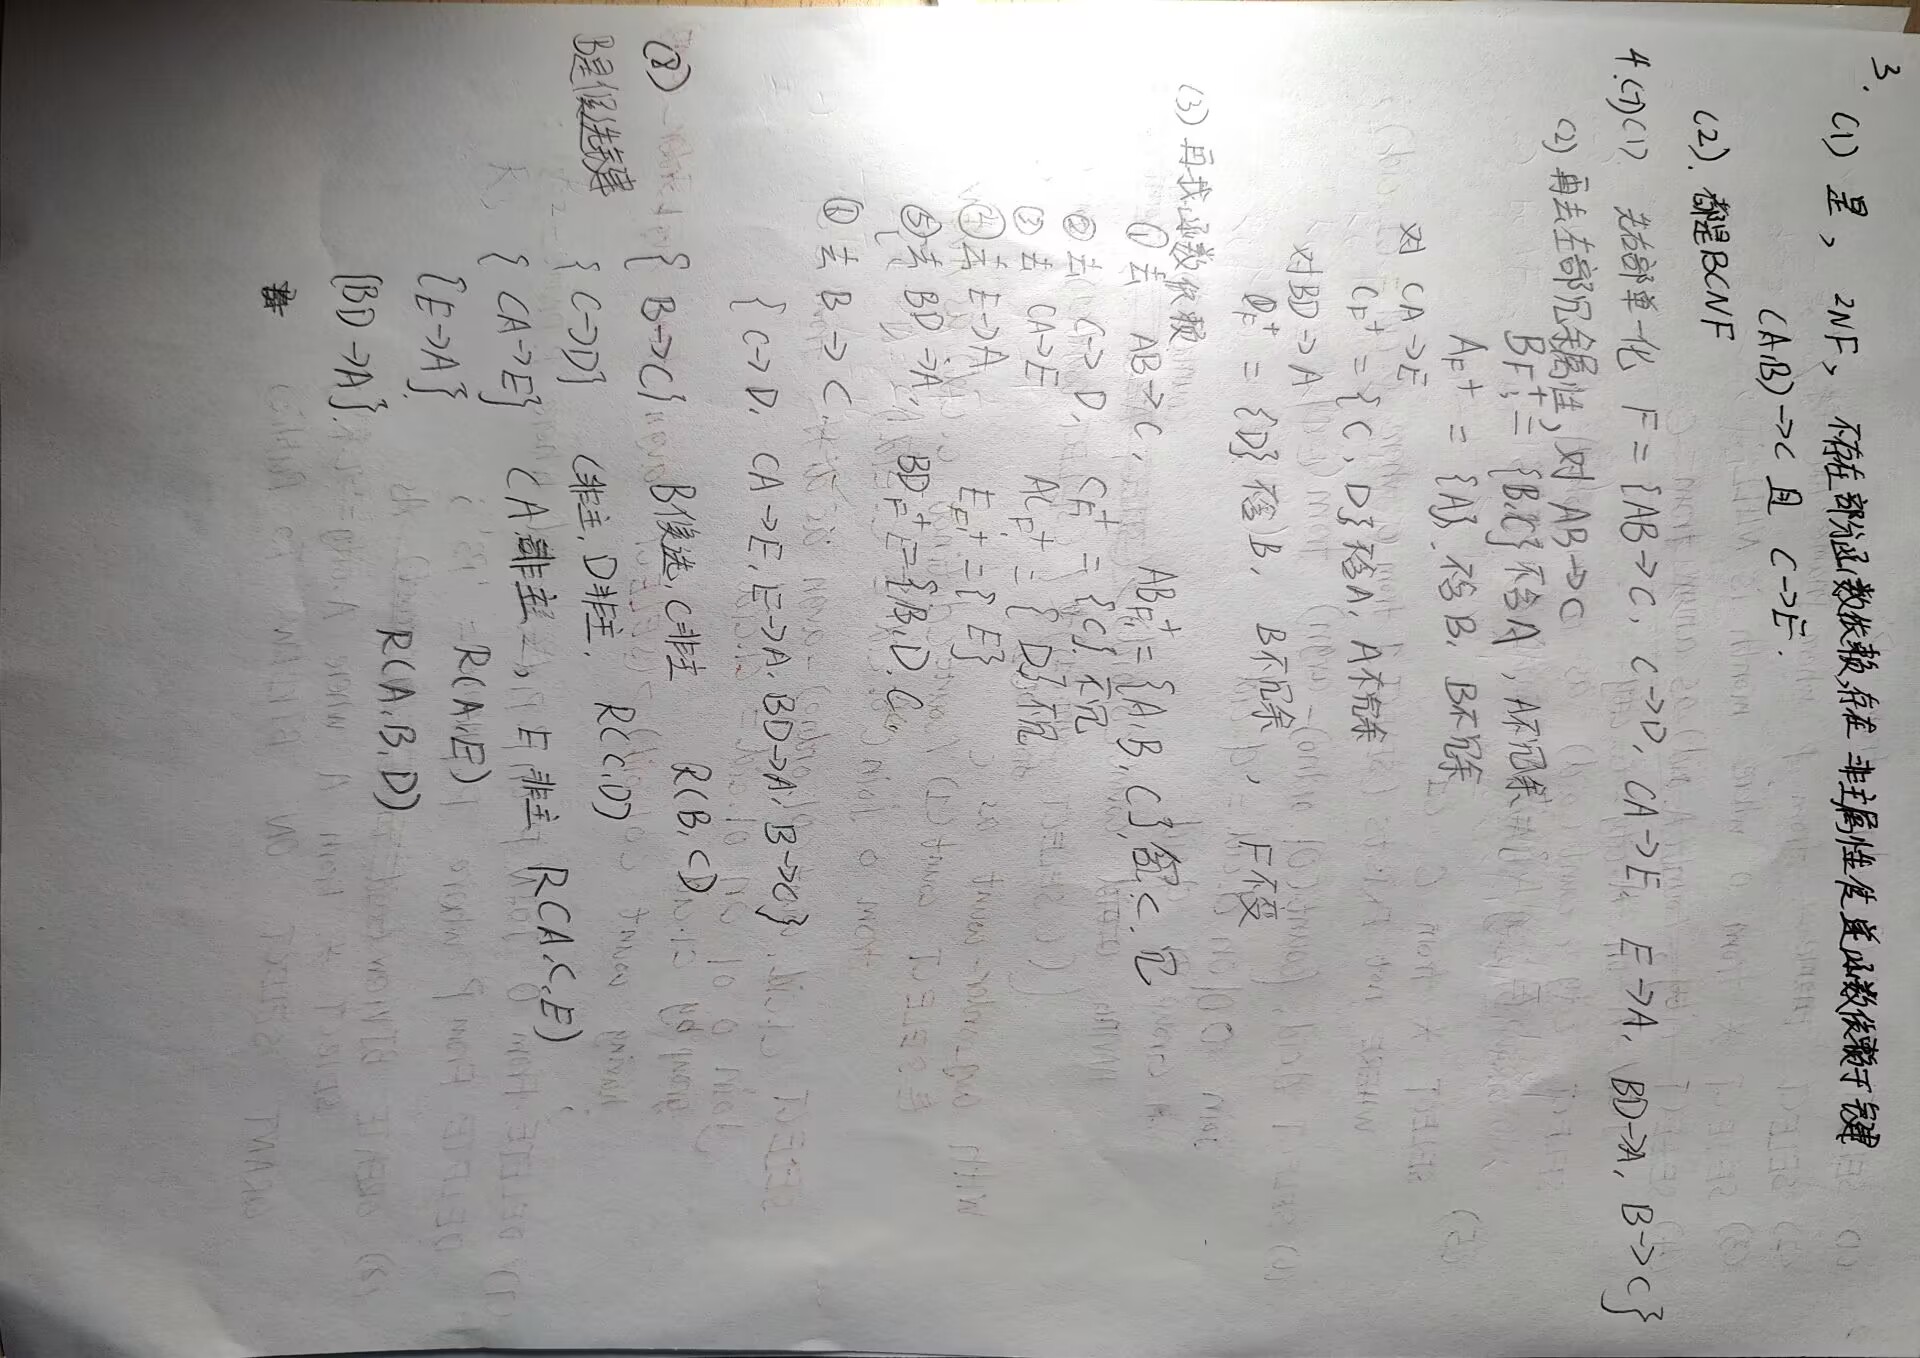 3.
(1) 是, 2NF, 不存在部分函数依赖,存在 非主属性传递函数依赖于键
(A,B)→C 且 C→E.
(2). 都是BCNF
4.(7)(1) 先右部单一化 F={AB→C, C→D, CA→E, E→A, BD→A, B→C}
(2) 再去左部冗余属性, 对 AB→C
BF⁺ = {B,C} 不含A, A不冗余
AF⁺ = {A}, 不含B, B不冗余
对 CA→E
CF⁺ = {C, D} 不含A, A不冗余
对BD→A
DF⁺ = {D} 不含B, B不冗余, F不变
(3) 再找函数依赖
① 去 AB→C, ABF⁺={A,B,C}, 含C, 冗
② 去 C→D, CF⁺={C}, 不冗
③ 去 CA→E ACF⁺={D}不冗
④ 去 E→A EF⁺={E}
⑤ 去 BD→A, BDF⁺={B,D,C,
⑥ 去 B→C
{C→D, CA→E, E→A, BD→A, B→C}
(8) {B→C} B候选,C非主 R(B,C)
B是候选键 {C→D} C非主,D非主, R(C,D)
{CA→E} CA非主, E非主 R(A,C,E)
{E→A} R(A,E)
{BD→A}. R(A,B,D)